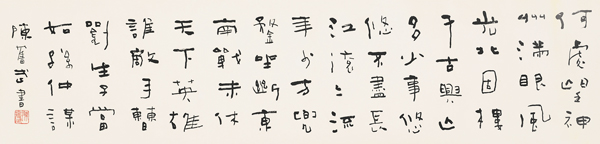 何處望神
州滿眼風
光北固樓
千古興亡
多少事悠
悠不盡長
江滚〻流
年少万兜
鍪坐斷東
南戰未休
天下英雄
誰敵手曹
劉生子當
如孫仲謀
陳奮武書